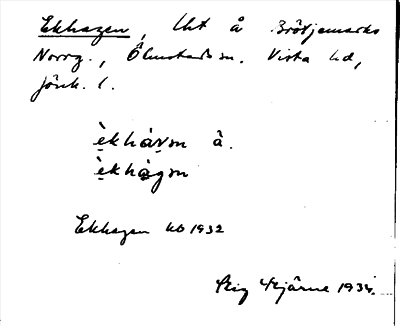 Ekhagen, Uht å Brötjemarks
Norrg., Ölmstads sn. Vista hd,
Jönk. l.
èkhàvm å.
èkhàgm
Ekhagen hd 1932
Stig Hjärne 1934.